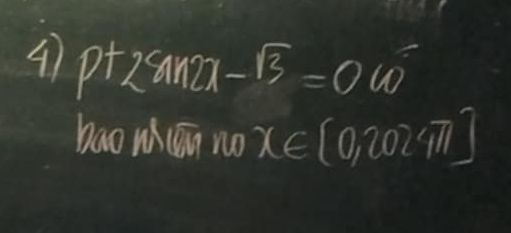 4) pt 2sin2x - √3 = 0 có
bao nhiêu no x ∈ [0, 2024π]